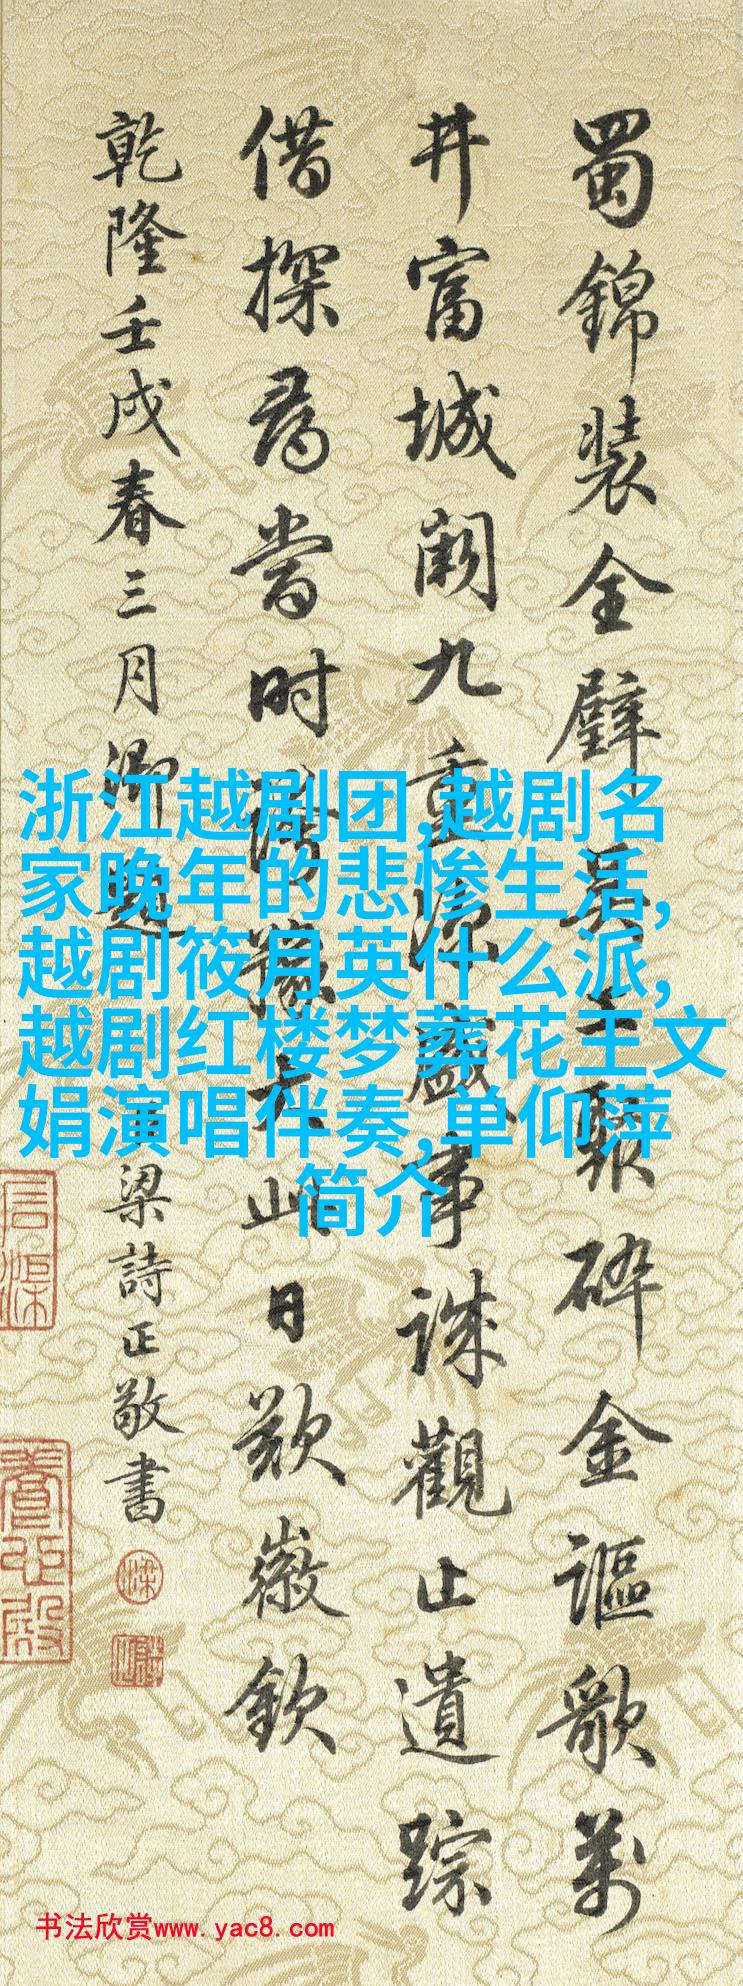 蜀錦装全璧吳工聚碎金謳歌萬
井富城闕九重深盛事誠觀止遺踪
借探尋當時誇豫大此日歎徽欽
乾隆壬戌春三月御題
梁詩正敬書
浙江越剧团,越剧名
家晚年的悲惨生活,
越剧筱月英什么派,
越剧红楼梦葬花王文
娟演唱伴奏,单仰萍
简介
书法欣赏www.yac8.com